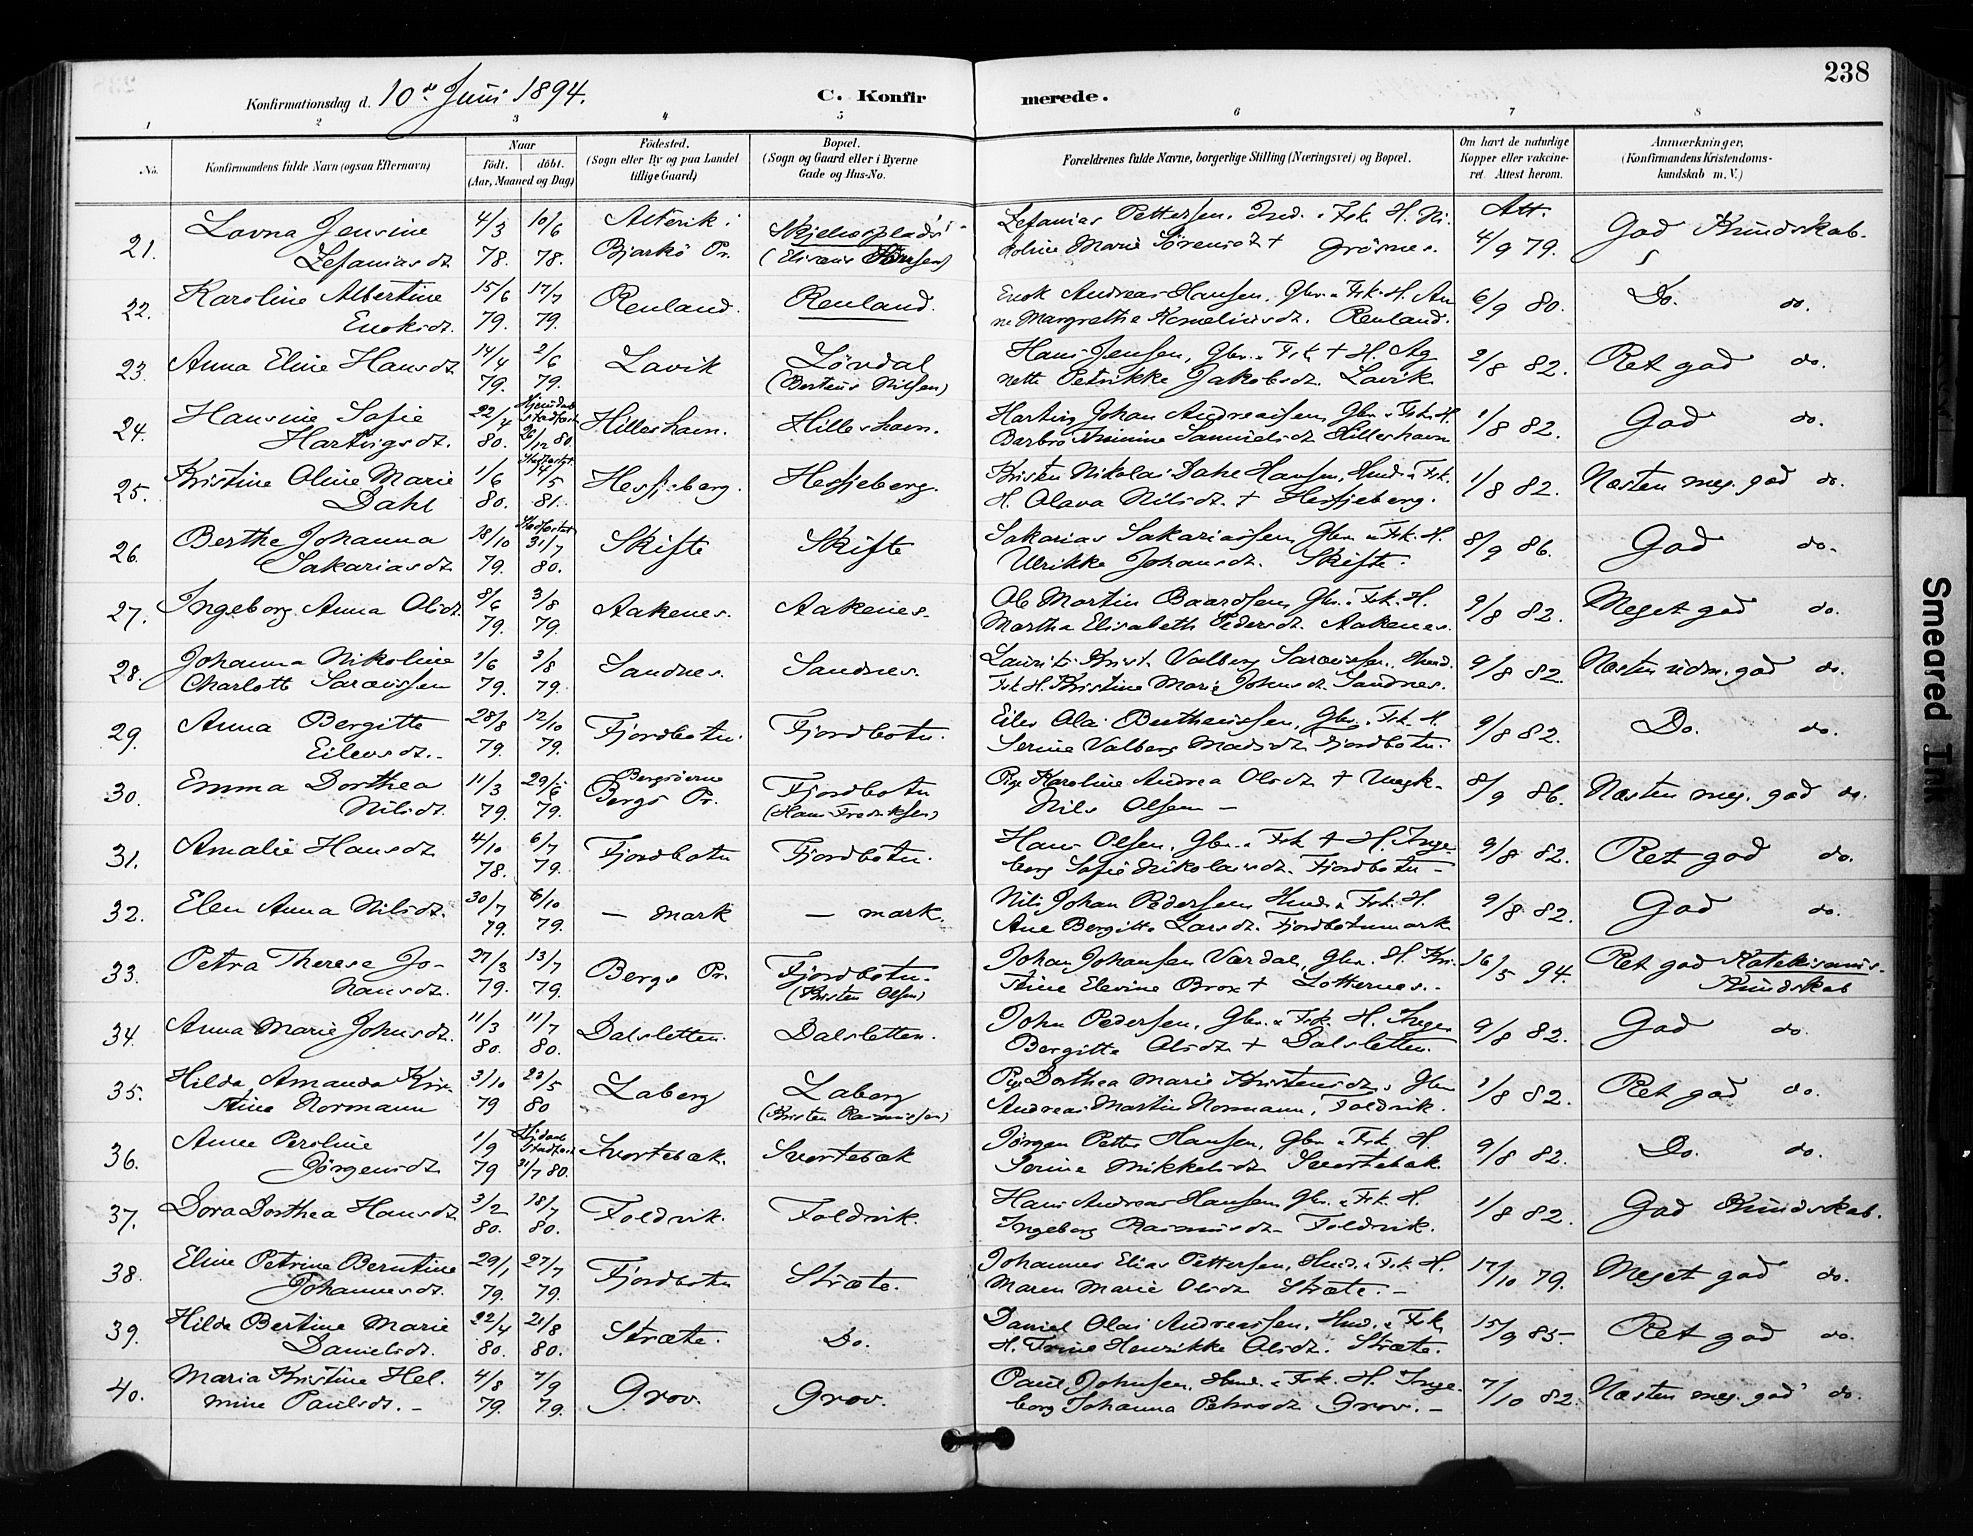 238
Konfirmationsdag d. 10de Juni 1894.
C. Konfirmerede.
1 2 3 4 5 6 7 8
No. Konfirmandens fulde Navn (ogsaa Efternavn) Naar födt. döbt. (Aar, Maaned og Dag) Födested. (Sogn eller By og paa Landet tillige Gaard) Bopæl. (Sogn og Gaard eller i Byerne Gade og Hus-No. Forældrenes fulde Navne, borgerlige Stilling (Næringsvei) og Bopæl. Om havt de naturlige Kopper eller vakcineret. Attest herom. Anmærkninger, (Konfirmandens Kristendomskundskab m. V.)
21. Lovna Jensine 4/3 10/6 Pettersen, Ind. Fsk. H. Ni- Att. God Kundskab.
Zefaniasdt. 78. 78. Bjarkö Pr. koline Marie Sörensdt + Grösnes. 4/9 79.
22. Karoline Albertine 15/6 17/7 Renland. Renland. Enok Andreas Hansen, Gbr. & Fsk. H. An- 6/9 80. Do. do.
Enoksdt. 79. 79. ne Margrethe Korneliusdt. Renland.
23. Anna Eline Hansdt 14/4 2/6 Lavik Lövdal Hans Jensen, Gbr. & Fsk + H. Ag- 2/8 82. Ret god do.
79. 79. (Berteus Nilsen) nette Petrikke Jakobsdt. Lavik
24. Hansine Sofie 22/4 Hjemdøbt Hilleshavn. Hilleshavn. Harting Johan Andreassen, Gbr. & Fsk. H. 1/8 82. God do.
Hartingsdt. 80. 26/12 80. Barbro Samuelsdt Hilleshavn
25. Kristine Oline Marie 1/6 4/5 Hessjeberg. Hessjeberg. Kristen Nikolai Dahl Hansen, Hmd. & Fsk. 1/8 82. Næsten meg. god do.
Dahl 80. 81. H. Olava Nilsdt. + Hessjeberg.
26. Berthe Johanna 18/10 31/7 Skifte Skifte Sakarias Sakariassen, Gbr. & Fsk. H. 8/9 86. God do.
Sakariasdt 79. 80. Ulrikke Johansdt. Skifte.
27. Ingeborg Anna Olsdt. 8/6 3/8 Aakenes. Aakenes. Ole Martin Baardsen, Gbr. & Fsk. H. 9/8 82. Meget god do.
79. 79. Martha Elisabeth Pedersdt. Aakenes.
28. Johanna Nikoline 1/6 3/8 Sandnes. Sandnes. Laurits Krist. Valberg Saraussen, Hmd. 9/8 82. Næsten udm. god do.
Charlotte Saraussen 79. 79. Fsk. H. Kristine Marie Johnsdt. Sandnes.
29. Anna Bergitte 28/8 12/10 Fjordbotn. Fjordbotn. Eiler Olai Bertheussen, Gbr. & Fsk. H. 9/8 82. Do. do.
Eilersdt. 79. 79. Serine Valberg Madsdt. Fjordbotn.
30. Emma Dorthea 11/3 29/6 Bergsöerne Fjordbotn Pige Karoline Andrea Olsdt + Ungk. 8/9 86. Næsten meg. god do.
Nilsdt. 79. 79. Bergs Pr. (Hans Fredriksen) Nils Olsen
31. Amalie Hansdt 4/10 6/7 Fjordbotn Fjordbotn. Hans Olsen, Gbr. & Fsk + H. Inge- 9/8 82. Ret god do.
78. 79. borg Sofie Nikolaisdt. Fjordbotn
32. Elen Anna Nilsdt. 30/7 6/10 — mark — mark. Nils Johan Pedersen, Hmd. & Fsk. H. 9/8 82. God do.
79. 79. Ane Bergitte Larsdt. Fjordbotnmark
33. Petra Therese Jo- 27/3 13/7 Bergs Pr. Fjordbotn. Johan Johansen Vardal, Gbr. H. Kri- 16/5 94. Ret god Katekismus-
hansdt. 79. 79. (Kristen Olsen) stine Elevine Brox + Kundskab
34. Anna Marie Johnsdt. 11/3 11/7 Dalsletten. Dalsletten. John Pedersen, Gbr. & Fsk. H. Inger 9/8 82. God do.
80. 80. Bergitte Olsdt + Dalsletten.
35. Hilda Amanda Kri- 3/10 23/5 Laberg Laberg Pige Dorthea Marie Kristensdt, & Gbr 1/8 82. Ret god do.
stine Normann 79 80 (Kristen Rasmussen) Andreas Martin Normann, Foldvik.
36. Anne Peroline 1/9 Svortebæk. Svortebæk Jörgen Petter Hansen, Gbr. & Fsk. H. 9/8 82. Do. do.
Jörgensdt. 79 31/7 80. Sorine Mikkelsdt. Svortebæk
37. Dora Dorthea Hansdt. 3/2 18/7 Foldvik. Foldvik. Hans Andreas Hansen, Gbr. & Fsk. H. 1/8 82. God Kundskab.
80. 80. Ingeborg Rasmusdt. Foldvik.
38. Eline Petrine Berntine 29/1 27/7 Fjordbotn Stræte. Johannes Elias Pettersen, Hmd. & Fsk H. 17/10 79. Meget god do.
Johannesdt. 79. 79. Maren Marie Olsdt Stræte.
39. Hilda Bertine Marie 22/4 21/8 Stræte. Do. Daniel Olai Andreassen, Hmd. & Fsk. 15/9 85. Ret god do.
Danielsdt. 80. 80. H. Trine Henrikke Olsdt. Stræte.
40. Maria Kristine Hel- 4/8 7/9 Grov. Grov. Paul Johnsen, Hmd. & Fsk. H. Inge- 7/10 82. Næsten meg. god do.
mine Paulsdt. 79. 79. borg Johanna Pehrsdt Grov.
Smeared Ink